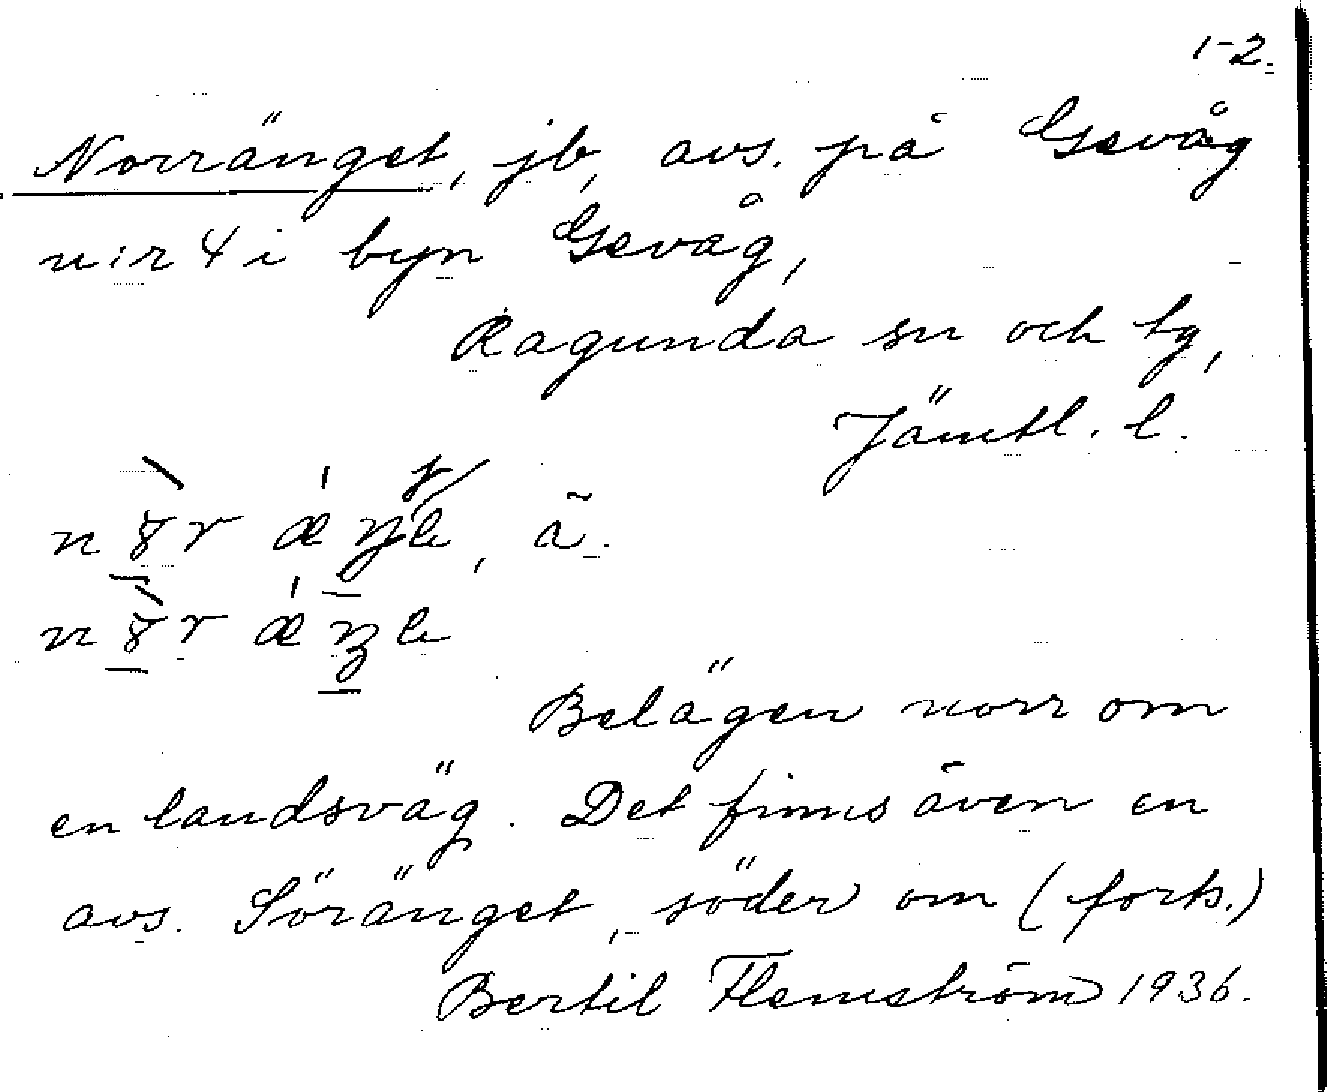 1-2.
Norränget, jb, avs. på Gevåg
n:r 4 i byn Gevåg,
Ragunda sn och tg,
Jämtl. l.
Belägen norr om
en landsväg. Det finns även en
avs. Söränget, söder om (forts.)
Bertil Flemström 1936.